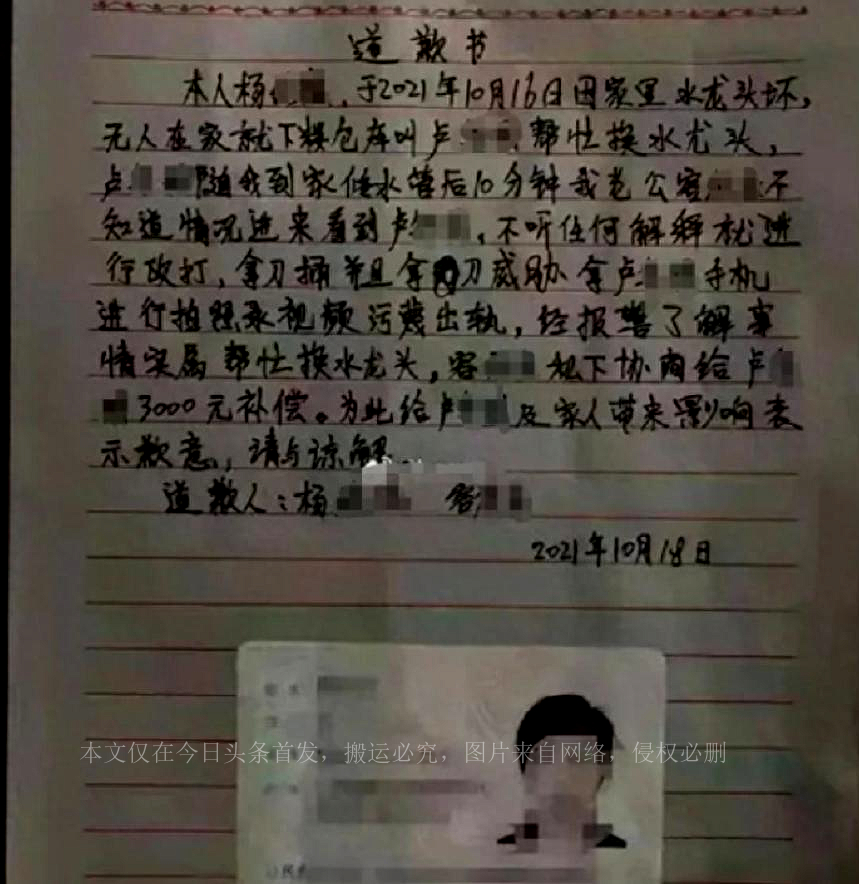 道歉书
本人杨 ,于2021年10月16日因家里水龙头坏,
无人在家就下粮仓库叫卢 帮忙换水龙头,
卢 随我到家修水管后10分钟我老公容 不
知道情况进来看到卢 ,不听任何解释就进
行攻打,拿刀捅并且拿 刀威胁拿卢 手机
进行拍照录视频污蔑出轨,经报警了解事
情实属帮忙换水龙头,容 私下协商给卢
3000元补偿。为此给卢 及家人带来影响表
示歉意,请与谅解.
道歉人:杨 容
2021年10月18日
本文仅在今日头条首发,搬运必究,图片来自网络,侵权必删